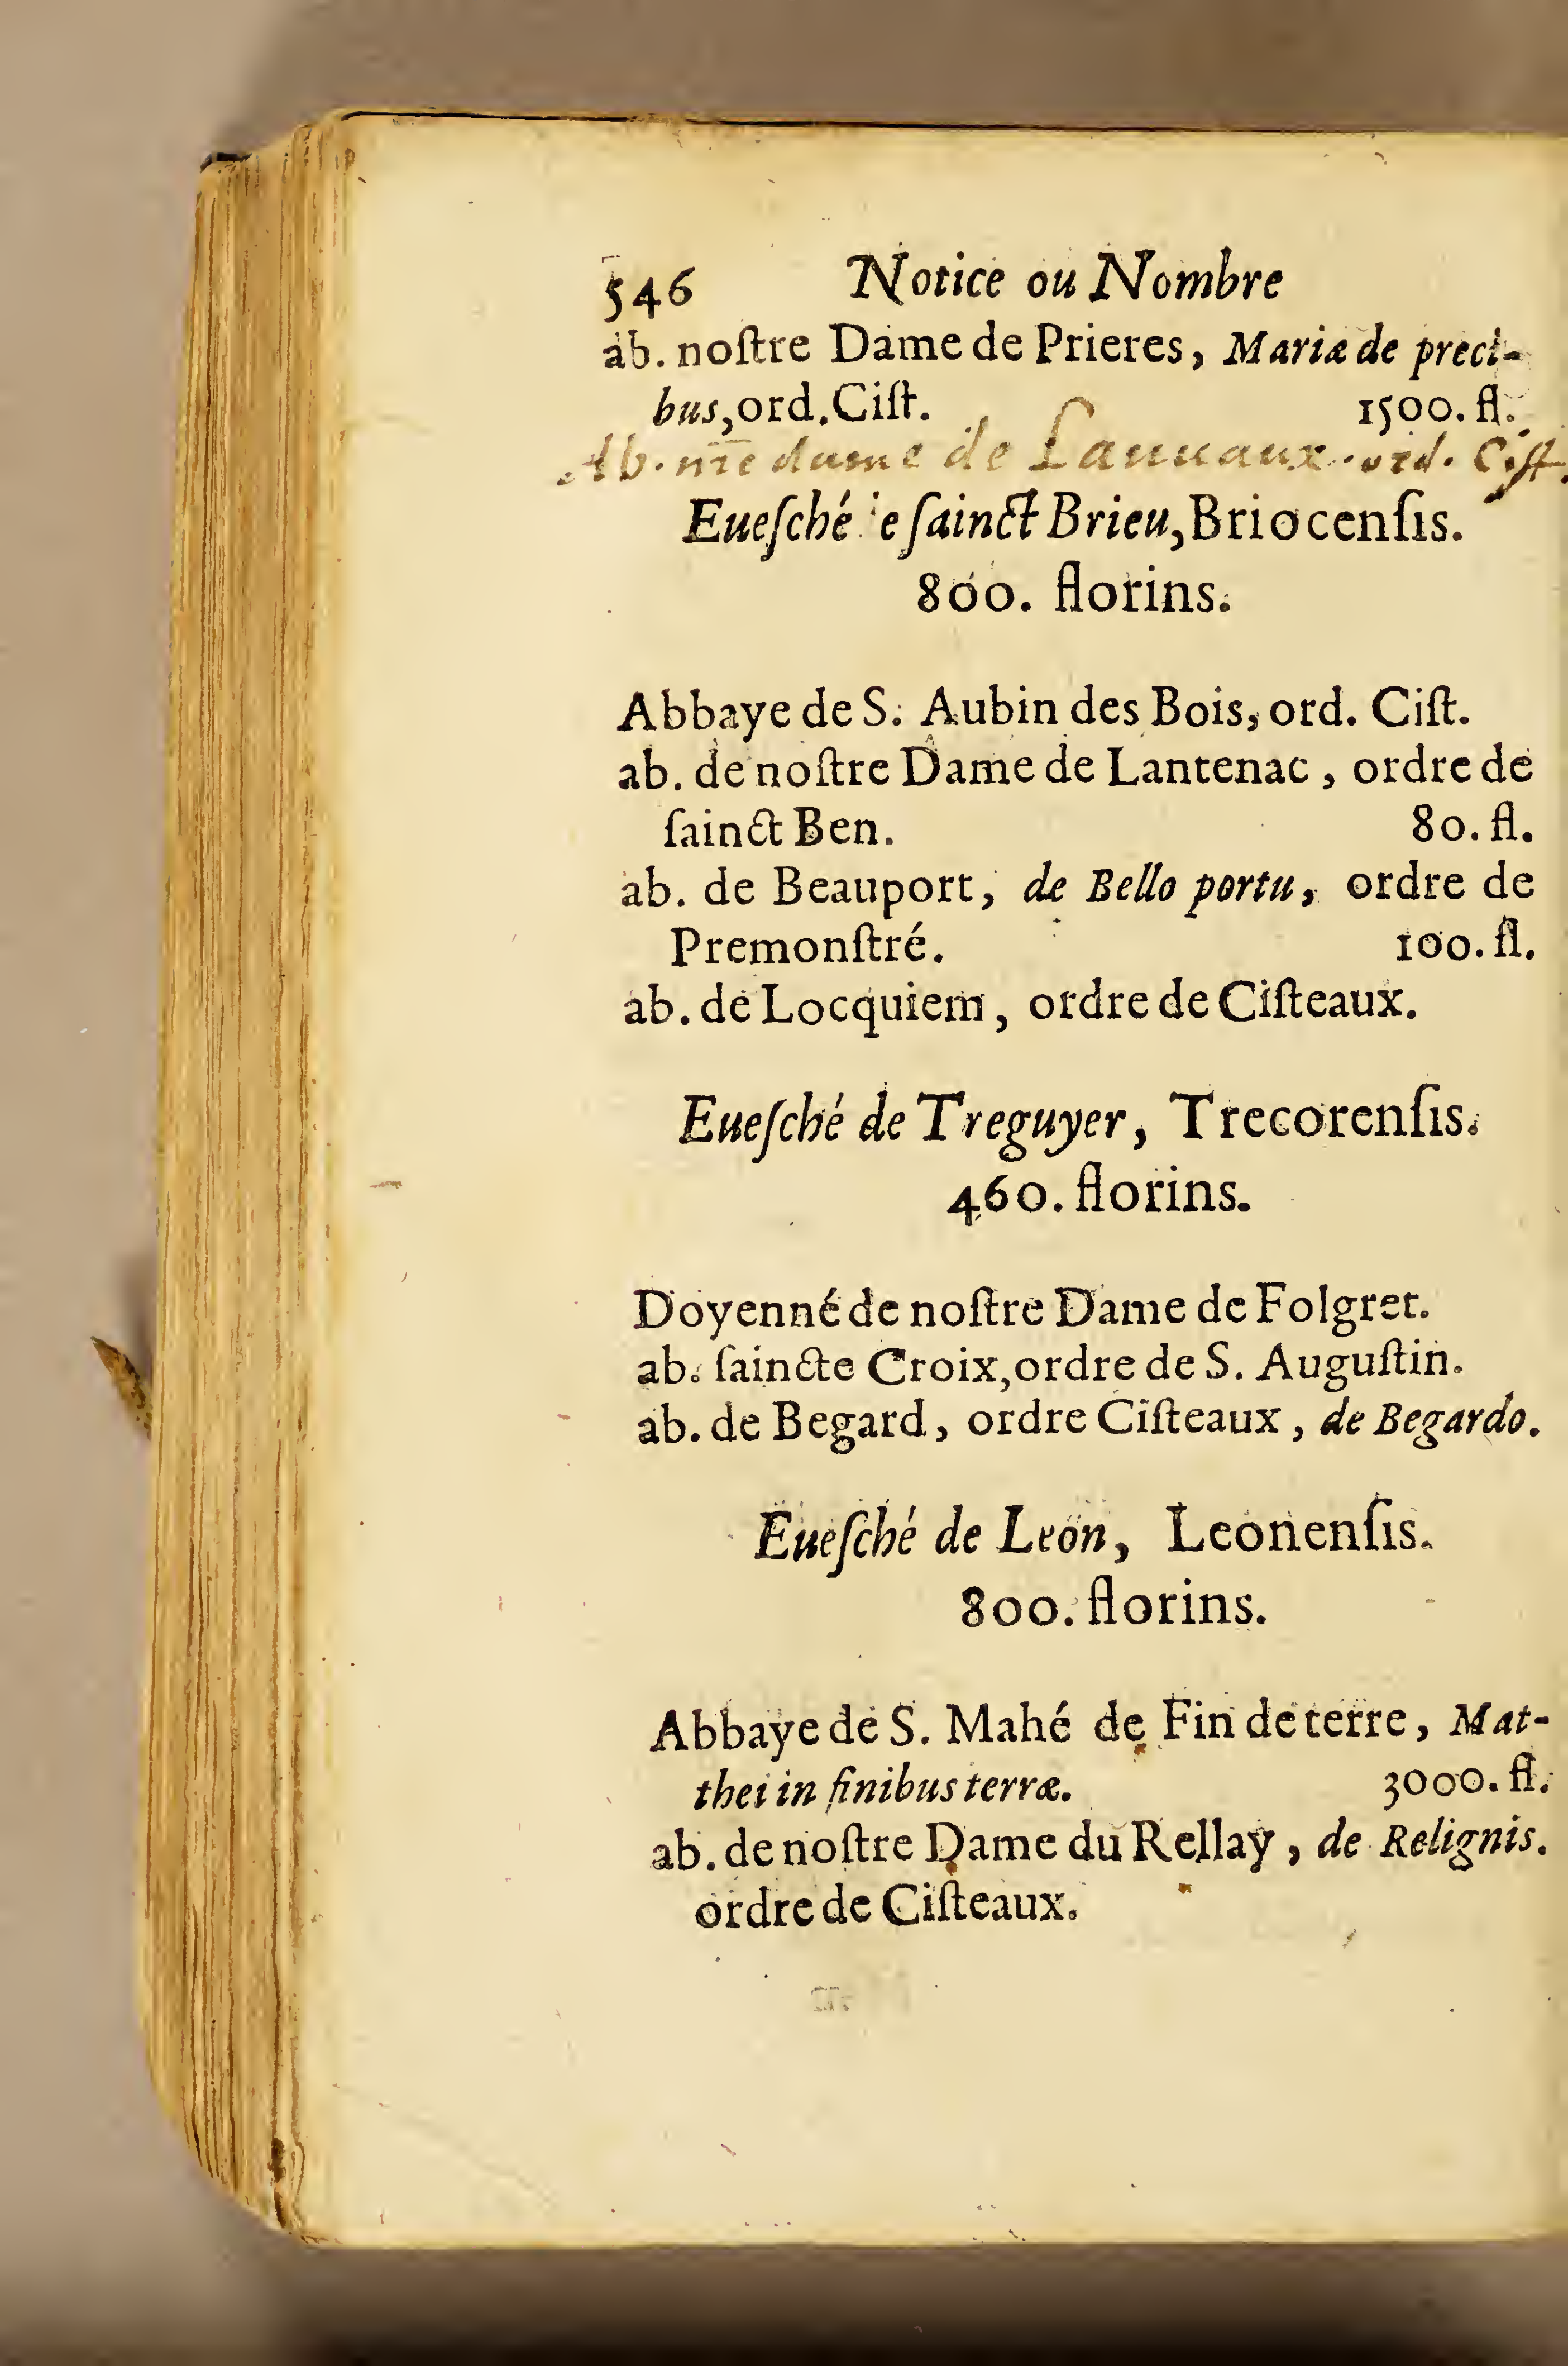 546 Notice ou Nombre
ab. noſtre Dame de Prieres, Mariæ de preci-
bus, ord. Ciſt. 1500. fl.
Ab. nr̄e dame de Lanuaux. ord. Ciſt.
Eueſché e ſainct Brieu, Briocenſis.
800. florins.
Abbaye de S. Aubin des Bois, ord. Ciſt.
ab. de noſtre Dame de Lantenac, ordre de
ſainct Ben. 80. fl.
ab. de Beauport, de Bello portu, ordre de
Premonſtré. 100. fl.
ab. de Locquiem, ordre de Ciſteaux.
Eueſché de Treguyer, Trecorenſis.
460. florins.
Doyenné de noſtre Dame de Folgret.
ab. ſaincte Croix, ordre de S. Auguſtin.
ab. de Begard, ordre Ciſteaux, de Begardo.
Eueſché de Leon, Leonenſis.
800. florins.
Abbaye de S. Mahé de Fin de terre, Mat-
thei in finibus terræ. 3000. fl.
ab. de noſtre Dame du Rellay, de Relignis.
ordre de Ciſteaux.